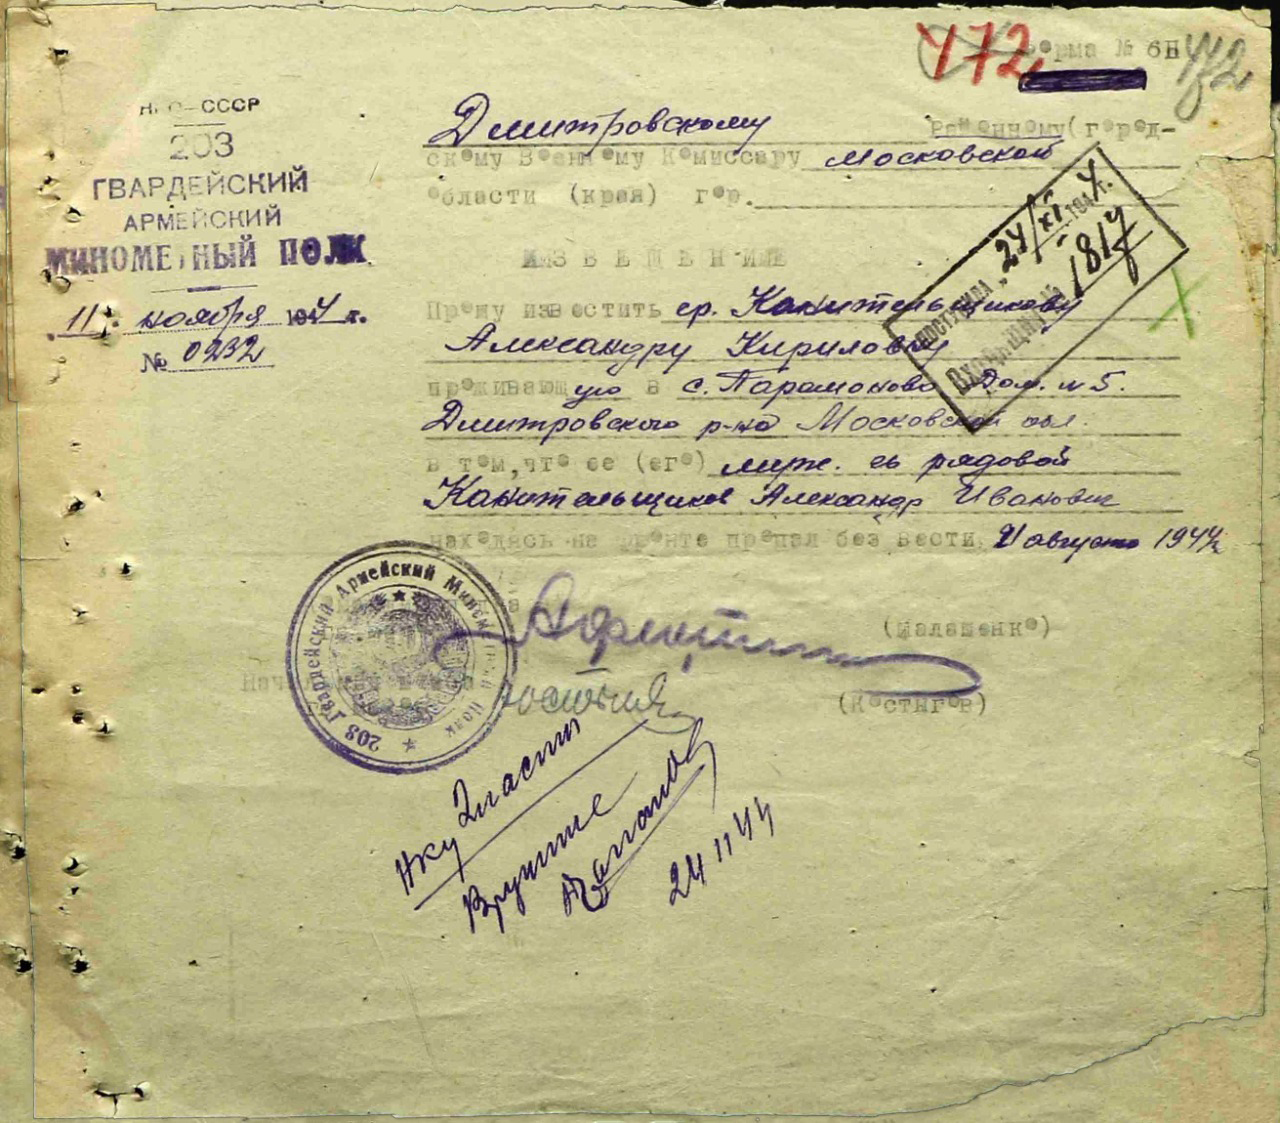 472
Форма № 6Н
472
НКО–СССР
203
ГВАРДЕЙСКИЙ
АРМЕЙСКИЙ
МИНОМЕТНЫЙ ПОЛК
11 ноября 1944 г.
№ 0232
Дмитровскому Районному (город-
скому Военному Комиссару Московской
области (края) гор.
ПОСТУПИЛА 24/XI 1944 г.
Входящий № 1817
ИЗВЕЩЕНИЕ
Прошу известить гр. Канительщикову
Александру Кириловну
проживающую в с. Парамоново Дом. №5.
Дмитровского р-на Московской обл.
в том, что ее (его) муж. гв рядовой
Канительщиков Александр Иванович
находясь на фронте пропал без вести V августа 1944г
203 Гвардейский Армейский Минометный Полк
(Малашенко)
Нач
(Костигов)
Нку 2 части
24 11 44